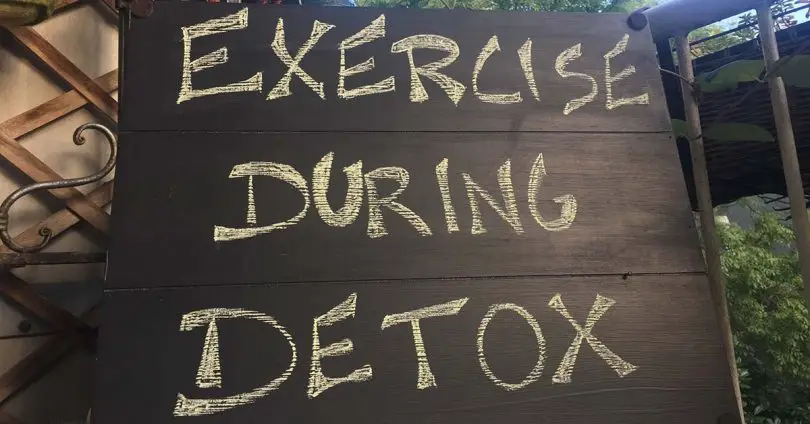 EXERCISE
DURING
DETOX